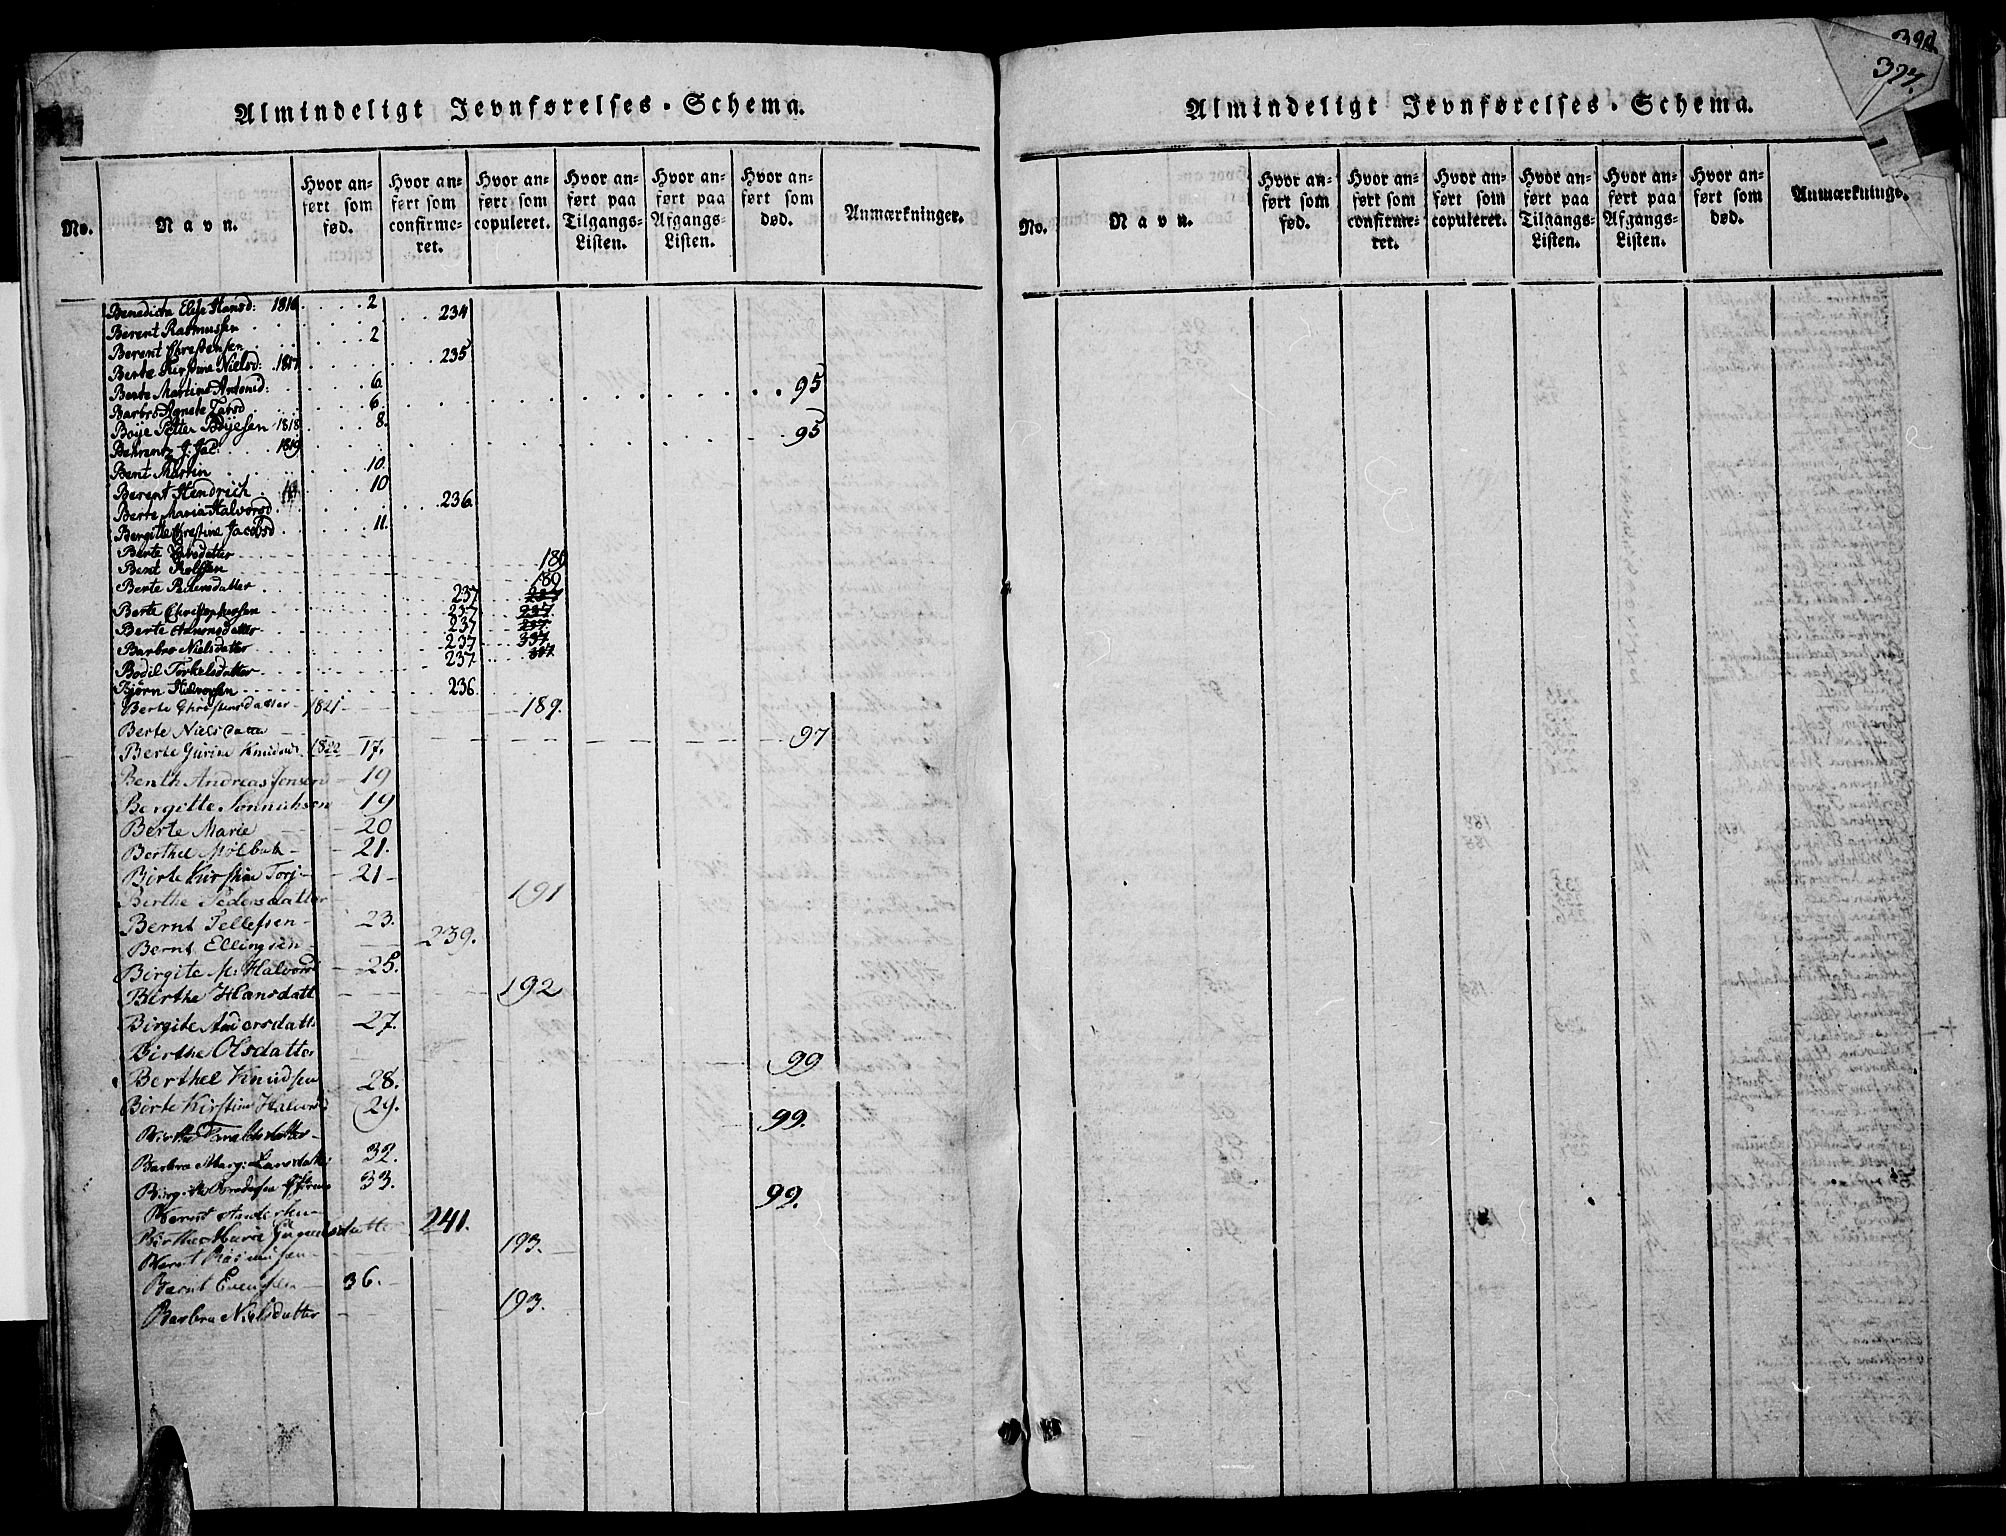 Almindeligt Jevnførelses-Schema.
No. Navn. Hvor anført som fød. Hvor anført som confirmeret. Hvor anført som copuleret. Hvor anført paa Tilgangs-Listen. Hvor anført paa Afgangs-Listen. Hvor anført som død. Anmærkninger.
Benedicta Else Hansd: 1816 2
Berent Rasmussen 234
Berent Christensen 2
Berte Kirstine Nielsd: 1817 235
Berte Martine Antonid: 6
Barbro Agnete Tarsd 6 95
Boije Petter Boijesen 1818 8
Behrentz J. Jac: 1819 95
Bent Martin 10
Berent Hendrich 10
Berte Maria Halvorsd 236
Bergitte Chrestine Jacobsd 11
Berte 189
Bent Rolfsen 189
Berte Pedersdatter 237
Berte Christophersen 237
Berte 237
Barbro Nielsdatter 237
Bodil Torkelsdatter 237
Bjørn Halvorsen 236
Berte Christensdatter 1821 189.
Berte Nielsdatter 97
Berte Gurine Knudsd. 1822 17.
Benth Andreas Jensen 19
Bergitte 19
Berte Marie 20
Berthel Mølbak 21.
Birte Kirstine Torj 21
Birthe Pedersdatter 191
Bernt Tellefsen 23.
Bernt Ellingsen 239.
Birgite M. Halvorsd 25.
Birthe Hansdatt 192
Birgite Andersdatt 27.
Birthe Olsdatter 99
Berthel Knudsen 28.
Birte Kirstine Halvorsd 29.
Birthe 99.
Barbra Marg: Larsdatt 32.
Birgitte 33.
Bernt Andersen 99.
Birthe Marie 241.
Bernt Rasmusen 193.
Bernt Evensen 36.
Barbra Nielsdatter 193.
391
327.
Almindeligt Jevnførelses-Schema.
No. Navn. Hvor anført som fød. Hvor anført som confirmeret. Hvor anført som copuleret. Hvor anført paa Tilgangs-Listen. Hvor anført paa Afgangs-Listen. Hvor anført som død. Anmærkninge.